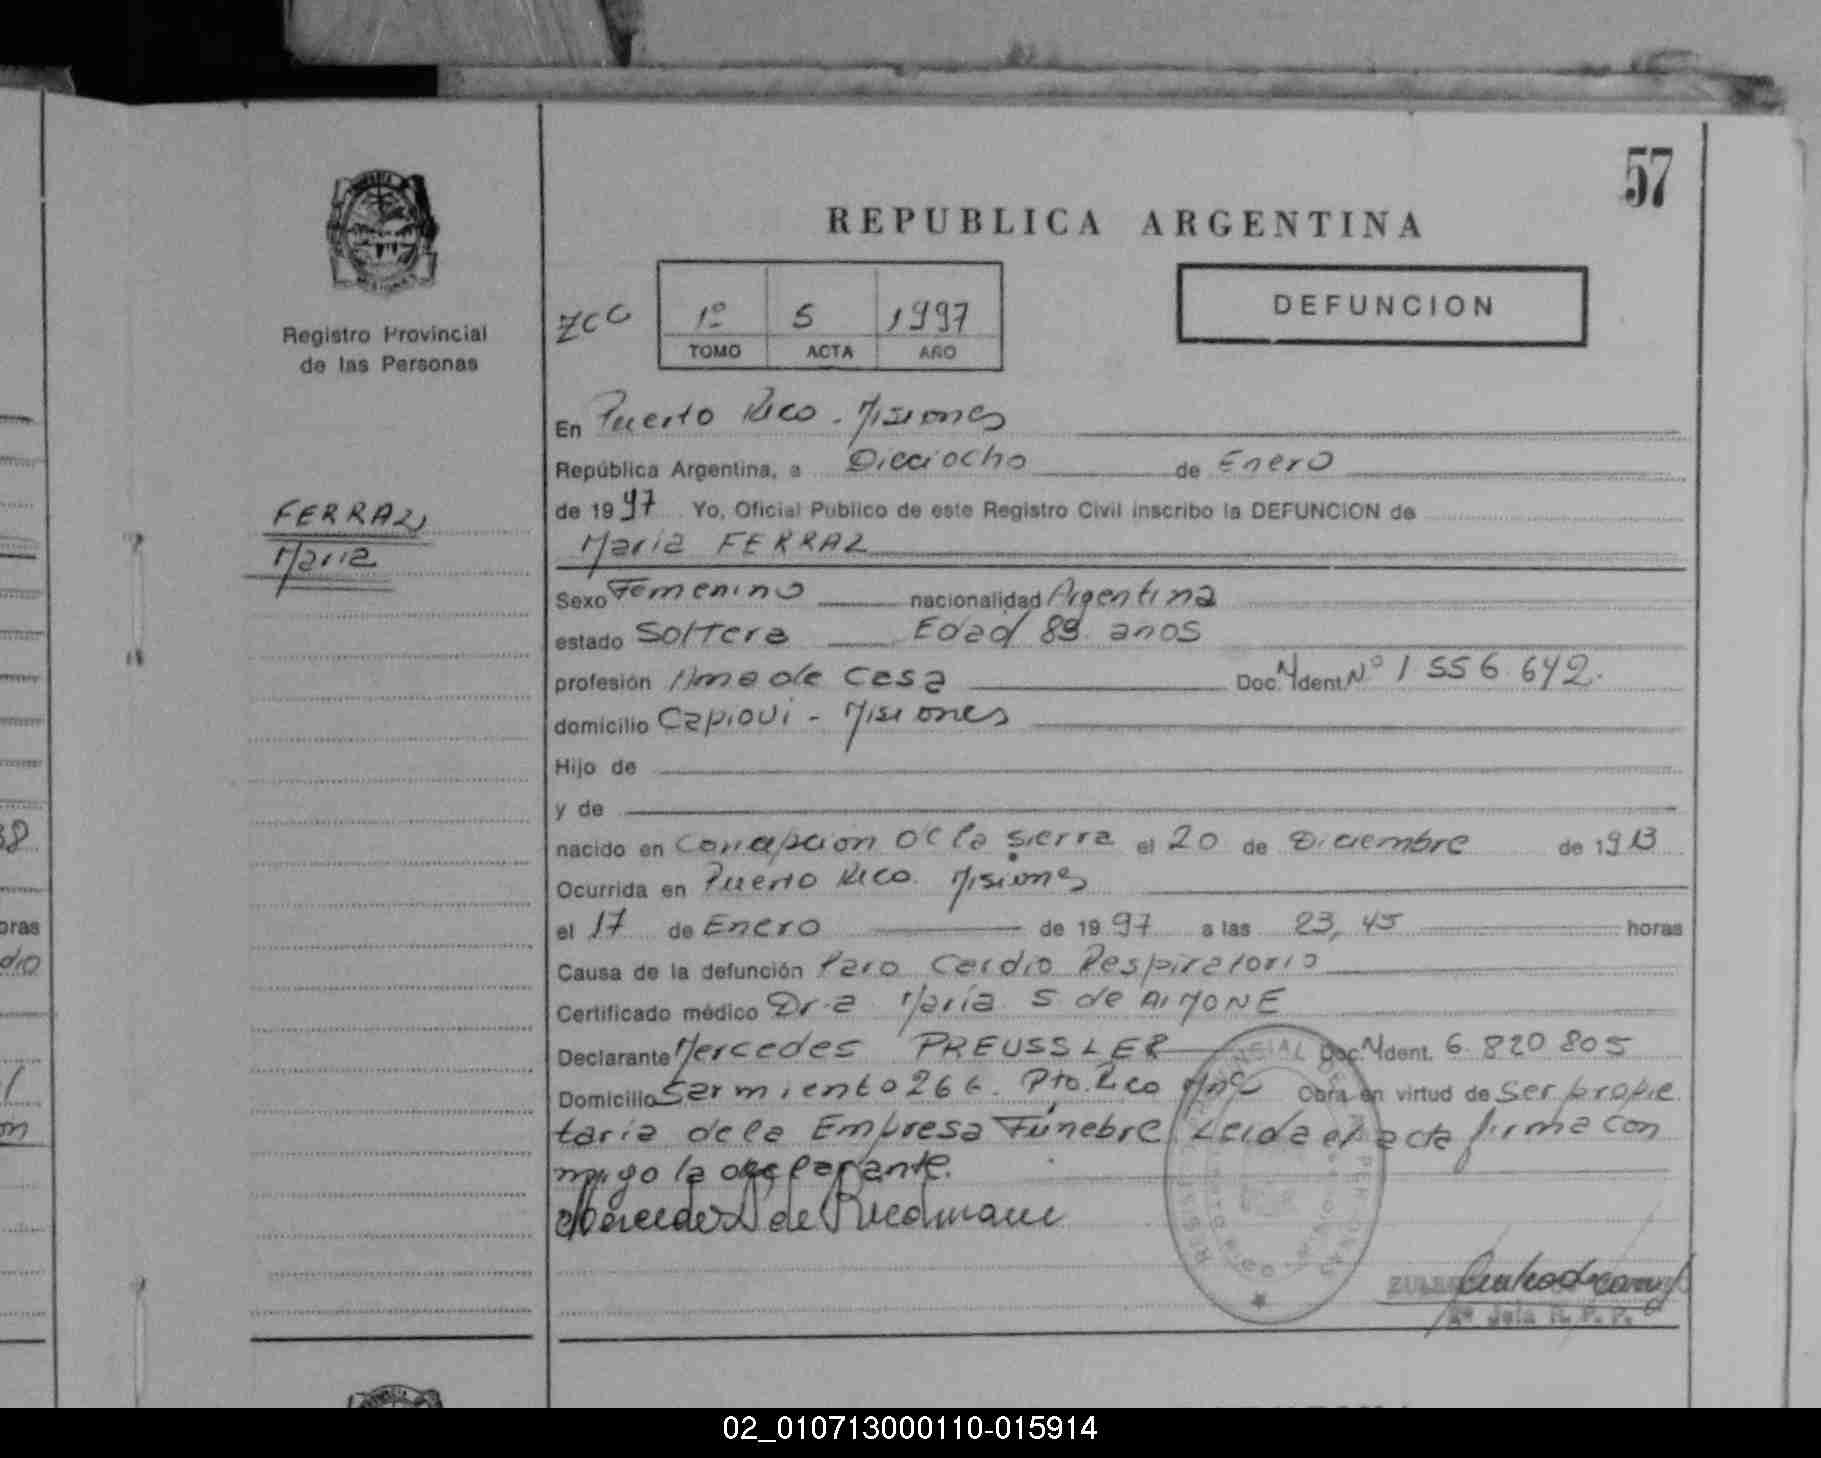 57
REPUBLICA ARGENTINA
DEFUNCION
Registro Provincial
de las Personas
1º 5 1997
TOMO ACTA AÑO
FERRAZ
Maria
En Puerto Rico - Misiones
República Argentina, a Dieciocho de Enero
de 1997 Yo, Oficial Público de este Registro Civil inscribo la DEFUNCION de
Maria FERRAZ
Sexo Femenino nacionalidad Argentina
estado Soltera Edad 89 anos
profesión Ama de Casa Doc. Ident. Nº 1 556 642.
domicilio Capiovi - Misiones
Hijo de
y de
nacido en Concepcion de la Sierra el 20 de Diciembre de 1913
Ocurrida en Puerto Rico Misiones
el 17 de Enero de 1997 a las 23,45 horas
Causa de la defunción Paro Cardio Respiratorio
Certificado médico Dr.a Maria S de AIMONE
Declarante Mercedes PREUSSLER Doc. Ident. 6 820 805
Domicilio Sarmiento 266. Pto. Rico Mnes Obra en virtud de ser propie
taria de la Empresa Fúnebre. Leida el acta firma con
migo la declarante.
Mercedes de Riedmaur
38
oras
dio
on
Jefa R. P. P.
02_010713000110-015914